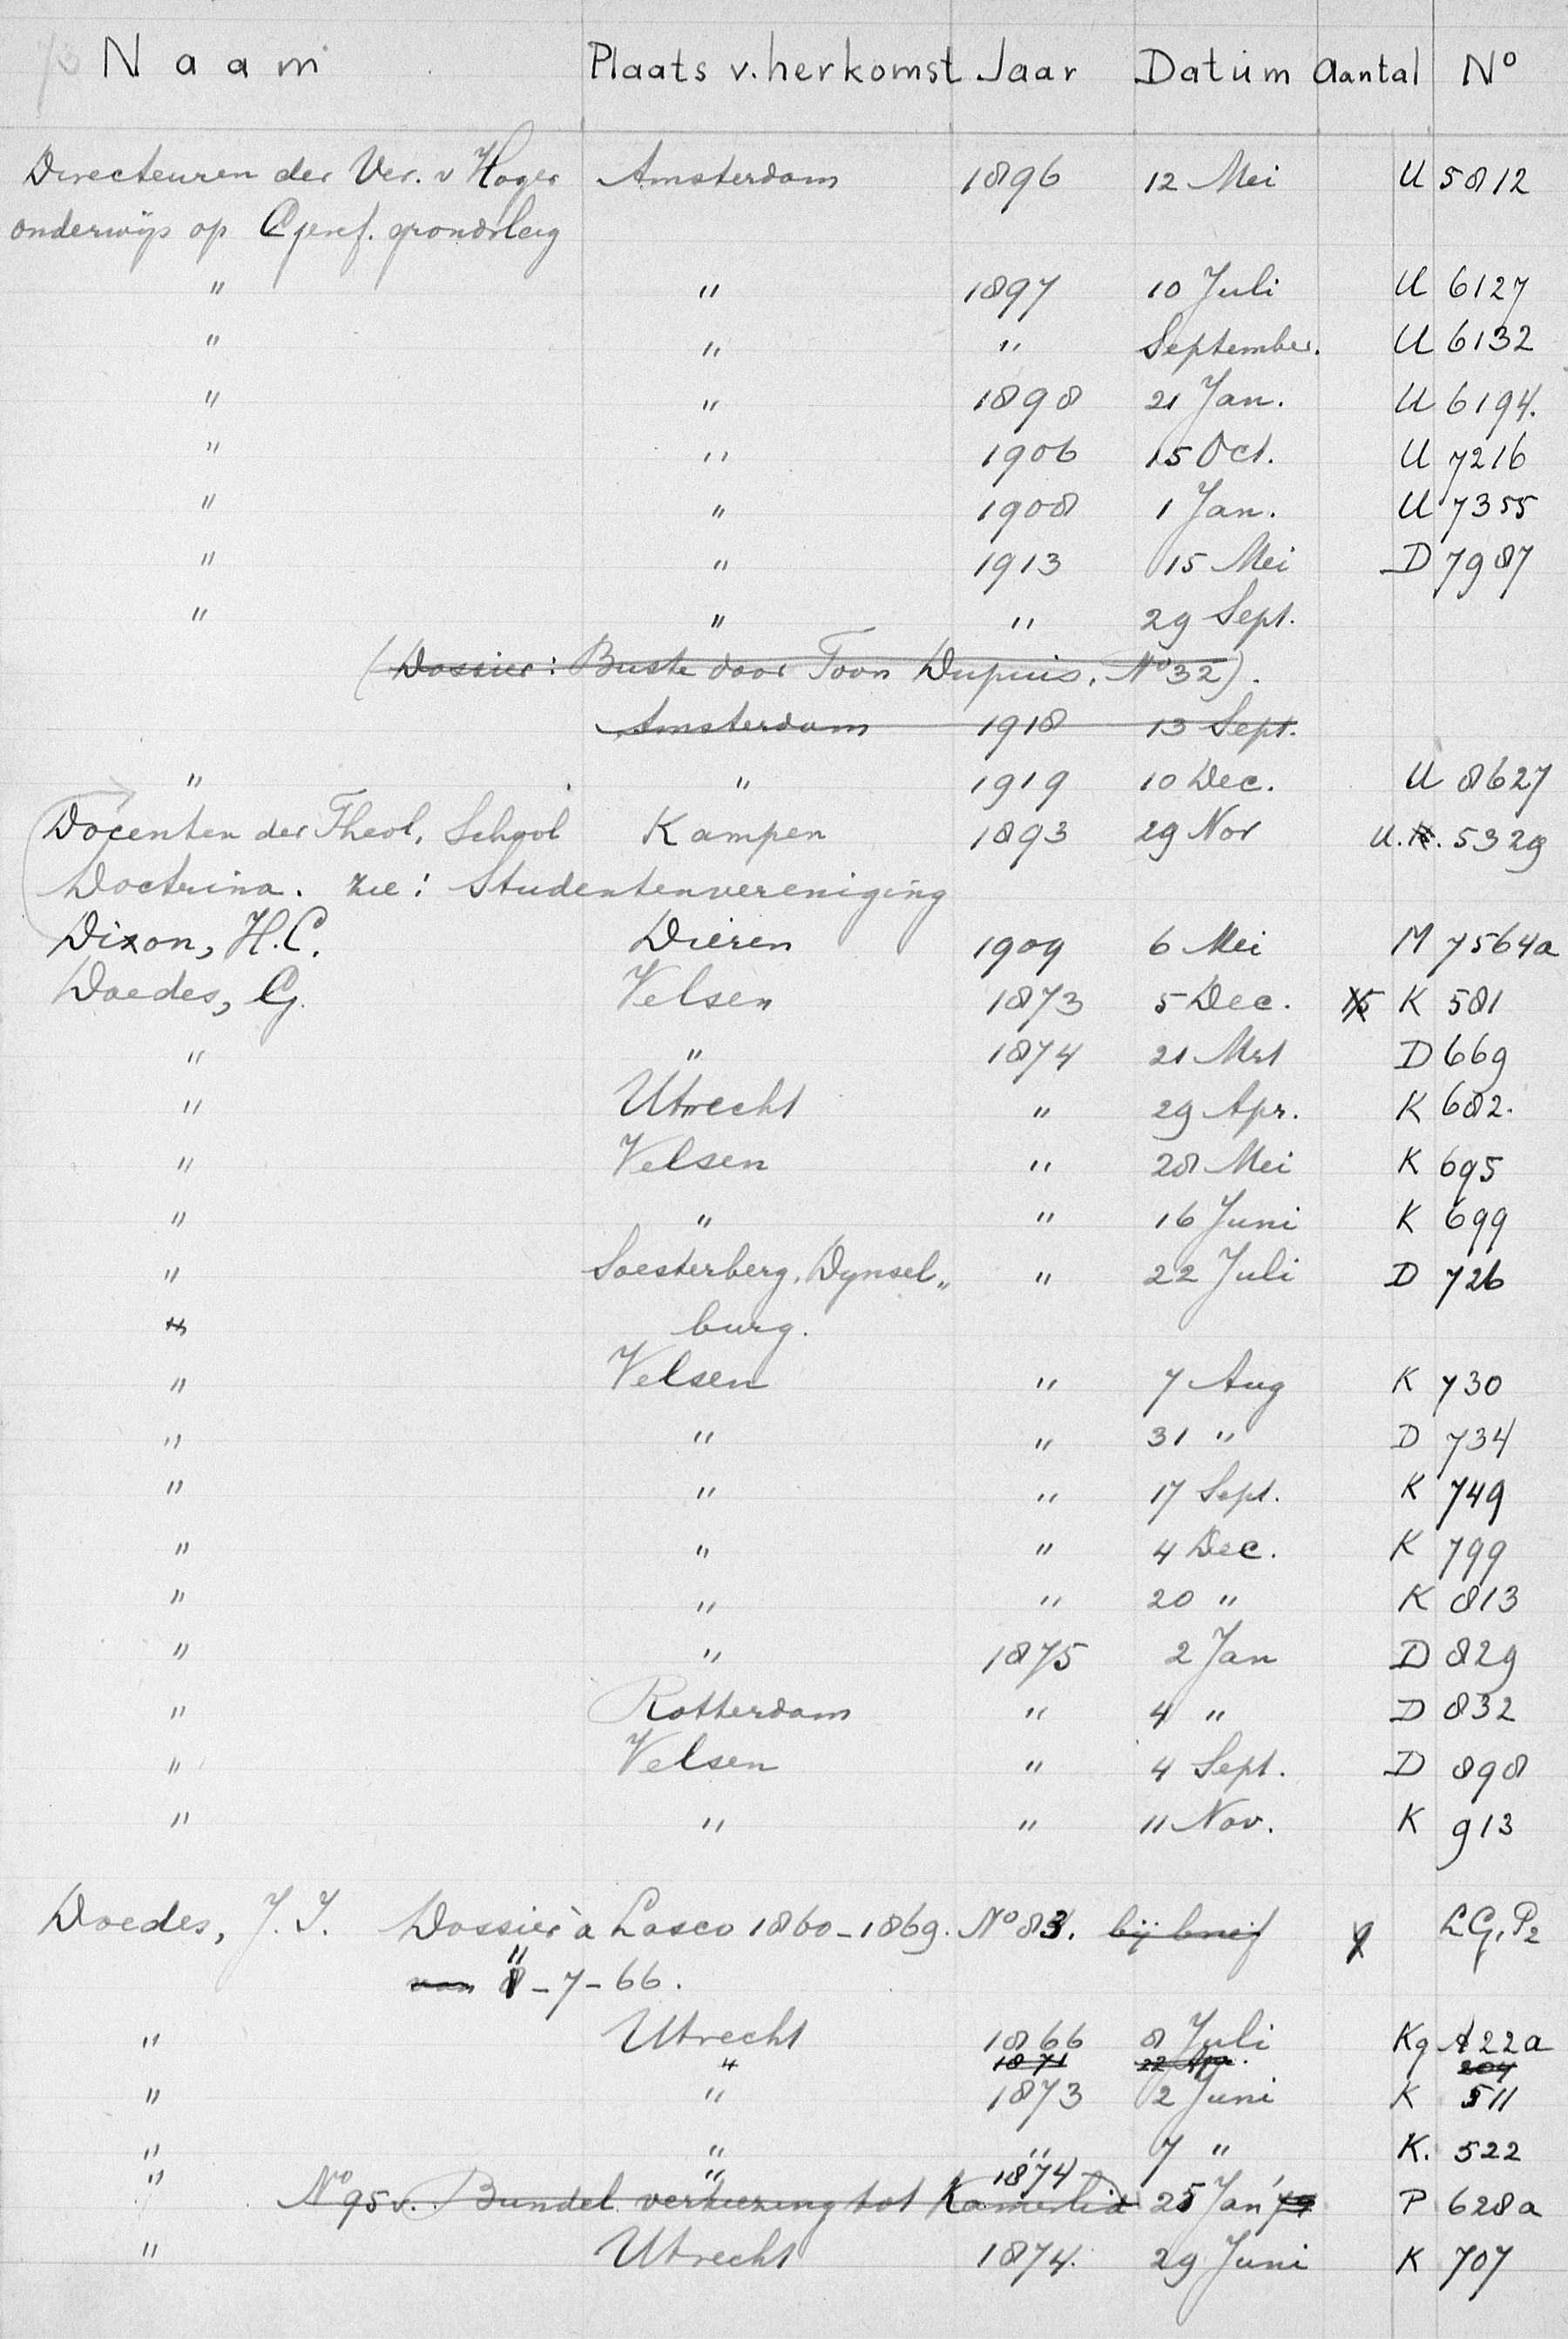 Naam Plaats v. herkomst Jaar Datum Aantal No
Directeuren der Ver. v Hoger Amsterdam 1896 12 Mei U 5812
onderwijs op Geref. grondslag
" " 1897 10 Juli U 6127
" " " September. U 6132
" " 1898 21 Jan. U 6194.
" " 1906 15 Oct. U 7216
" " 1908 1 Jan. U 7355
" " 1913 15 Mei D 7987
" " " 29 Sept.
(Dossier: Buste door Toon Dupuis. No 32).
Amsterdam 1918 13 Sept.
" " 1919 10 Dec. U 8627
Docenten der Theol. School Kampen 1893 29 Nov U. 5329
Doctrina. zie: Studentenvereniging
Dixon, H.C. Dieren 1909 6 Mei M 7564a
Doedes, G. Velsen 1873 5 Dec. 15 K 581
" " 1874 21 Mrt D 669
" Utrecht " 29 Apr. K 682.
" Velsen " 28 Mei K 695
" " " 16 Juni K 699
" Soesterberg. Dynsel„ " 22 Juli D 726
" burg.
" Velsen " 7 Aug K 730
" " " 31 " D 734
" " " 17 Sept. K 749
" " " 4 Dec. K 799
" " " 20 " K 813
" " 1875 2 Jan D 829
" Rotterdam " 4 " D 832
" Velsen " 4 Sept. D 898
" " " 11 Nov. K 913
Doedes, J. I. Dossier à Lasco 1860-1869. No 83. bij brief LG, P2
van " 8-7-66.
" Utrecht 1866 8 Juli Kg A22a
" 1871 22 Apr. 204
" " 1873 2 Juni K 511
" " " 7 " K. 522
" " 1874
No 95v. Bundel verkiezing tot Kamerlid 25 Jan '79 P 628a
" Utrecht 1874. 29 Juni K 707